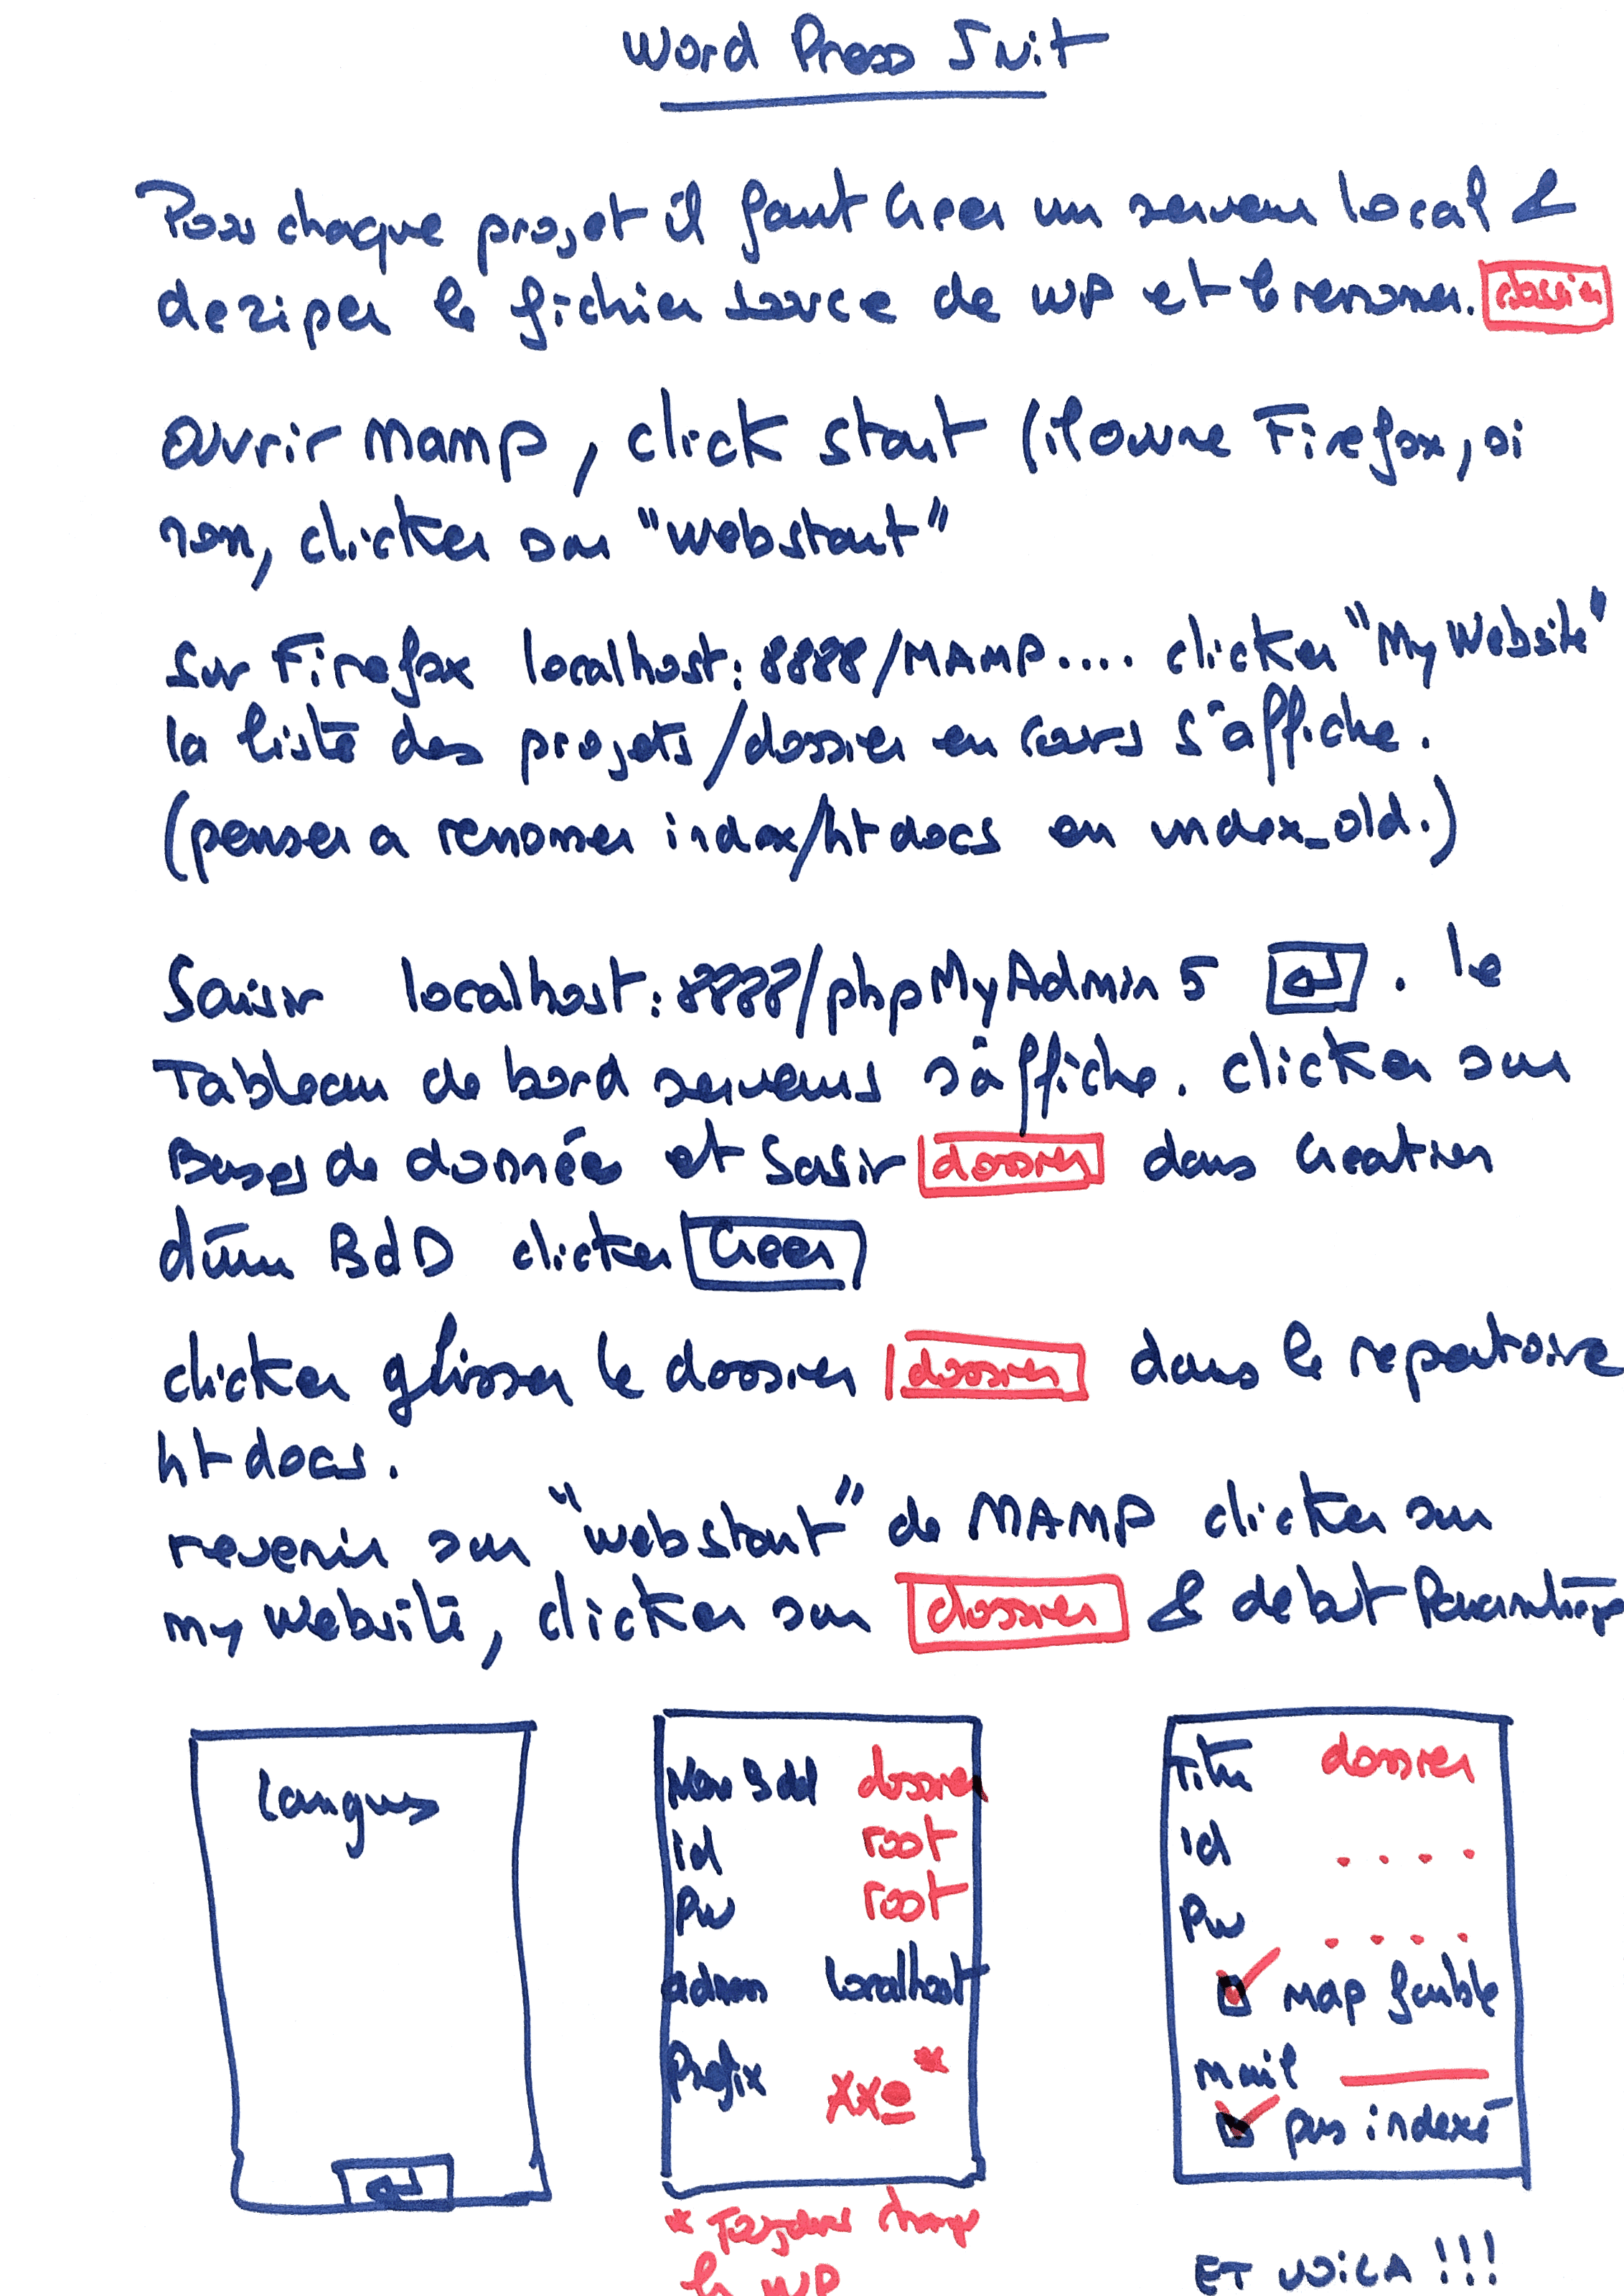 Word Press Init
Pour chaque projet il faut créer un serveur local &
deziper le fichier source de WP et le renomer. dossier
ouvrir Mamp, click start (il ouvre Firefox, si
non, clicker sur "webstart"
Sur Firefox localhost:8888/MAMP.... clicker "My Website"
la liste des projets/dossier en cours s'affiche.
(penser a renomer index/htdocs en index_old.)
Saisir localhost:8888/phpMyAdmin5 . le
Tableau de bord serveurs s'affiche. clicker sur
Bases de donnée et Saisir dossier dans Creation
d'une BdD clicker Creer
clicker glisser le dossier dossier dans le repertoire
htdocs.
revenir sur "webstart" de MAMP clicker sur
my website, clicker sur dossier & debut
Langues
Nom Bdd dossier
id root
Pw root
admin localhost
Prefix xx_*
* Toujours change
le WP
Titre dossier
id ....
Pw ....
map faible
mail
pas indexé
ET VOILA !!!